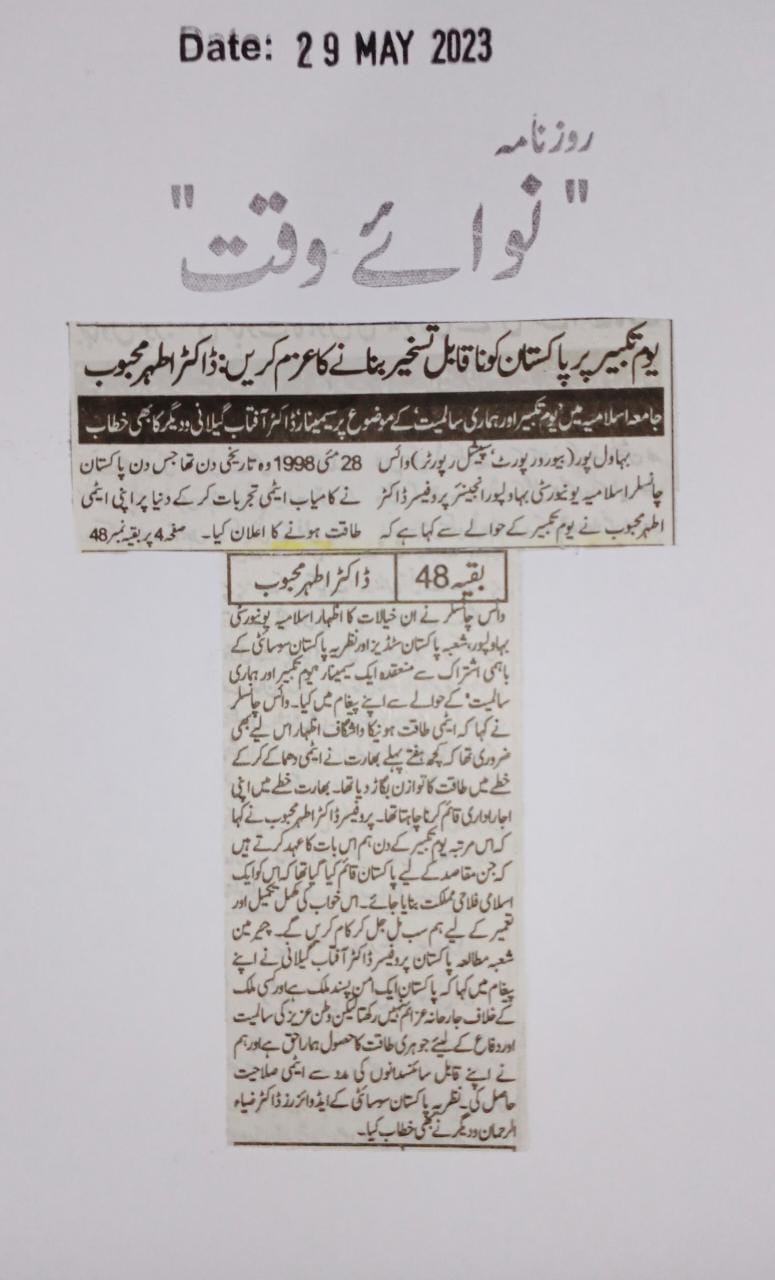 Date: 29 MAY 2023
روزنامہ
"نوائے وقت"
یوم تکبیر پر پاکستان کو ناقابل تسخیر بنانے کا عزم کریں: ڈاکٹر اطہر محبوب
جامعہ اسلامیہ میں ’یوم تکبیر اور ہماری سالمیت‘ کے موضوع پر سیمینار‘ ڈاکٹر آفتاب گیلانی و دیگر کا بھی خطاب
بہاول پور (بیورو رپورٹ‘ سپیشل رپورٹر) وائس
چانسلر اسلامیہ یونیورسٹی بہاولپور انجینئر پروفیسر ڈاکٹر
اطہر محبوب نے یوم تکبیر کے حوالے سے کہا ہے کہ
28 مئی 1998 وہ تاریخی دن تھا جس دن پاکستان
نے کامیاب ایٹمی تجربات کر کے دنیا پر اپنی ایٹمی
طاقت ہونے کا اعلان کیا۔ صفحہ 4 پر بقیہ نمبر 48
بقیہ 48
ڈاکٹر اطہر محبوب
وائس چانسلر نے ان خیالات کا اظہار اسلامیہ یونیورسٹی
بہاولپور، شعبہ پاکستان سٹڈیز اور نظریہ پاکستان سوسائٹی کے
باہمی اشتراک سے منعقدہ ایک سیمینار ’یوم تکبیر اور ہماری
سالمیت‘ کے حوالے سے اپنے پیغام میں کیا۔ وائس چانسلر
نے کہا کہ ایٹمی طاقت ہونیکا واشگاف اظہار اس لیے بھی
ضروری تھا کہ کچھ ہفتے پہلے بھارت نے ایٹمی دھماکے کر کے
خطے میں طاقت کا توازن بگاڑ دیا تھا۔ بھارت خطے میں اپنی
اجاراداری قائم کرنا چاہتا تھا۔ پروفیسر ڈاکٹر اطہر محبوب نے کہا
کہ اس مرتبہ یوم تکبیر کے دن ہم اس بات کا عہد کرتے ہیں
کہ جن مقاصد کے لیے پاکستان قائم کیا گیا تھا کہ اس کو ایک
اسلامی فلاحی مملکت بنایا جائے۔ اس خواب کی مکمل تکمیل اور
تعمیر کے لیے ہم سب مل جل کر کام کریں گے۔ چیئرمین
شعبہ مطالعہ پاکستان پروفیسر ڈاکٹر آفتاب گیلانی نے اپنے
پیغام میں کہا کہ پاکستان ایک امن پسند ملک ہے اور کسی ملک
کے خلاف جارحانہ عزائم نہیں رکھتا لیکن وطن عزیز کی سالمیت
اور دفاع کے لیئے جوہری طاقت کا حصول ہمارا حق ہے اور ہم
نے اپنے قابل سائنسدانوں کی مدد سے ایٹمی صلاحیت
حاصل کی۔ نظریہ پاکستان سوسائٹی کے ایڈوائزرز ڈاکٹر ضیاء
الرحمان و دیگر نے بھی خطاب کیا۔